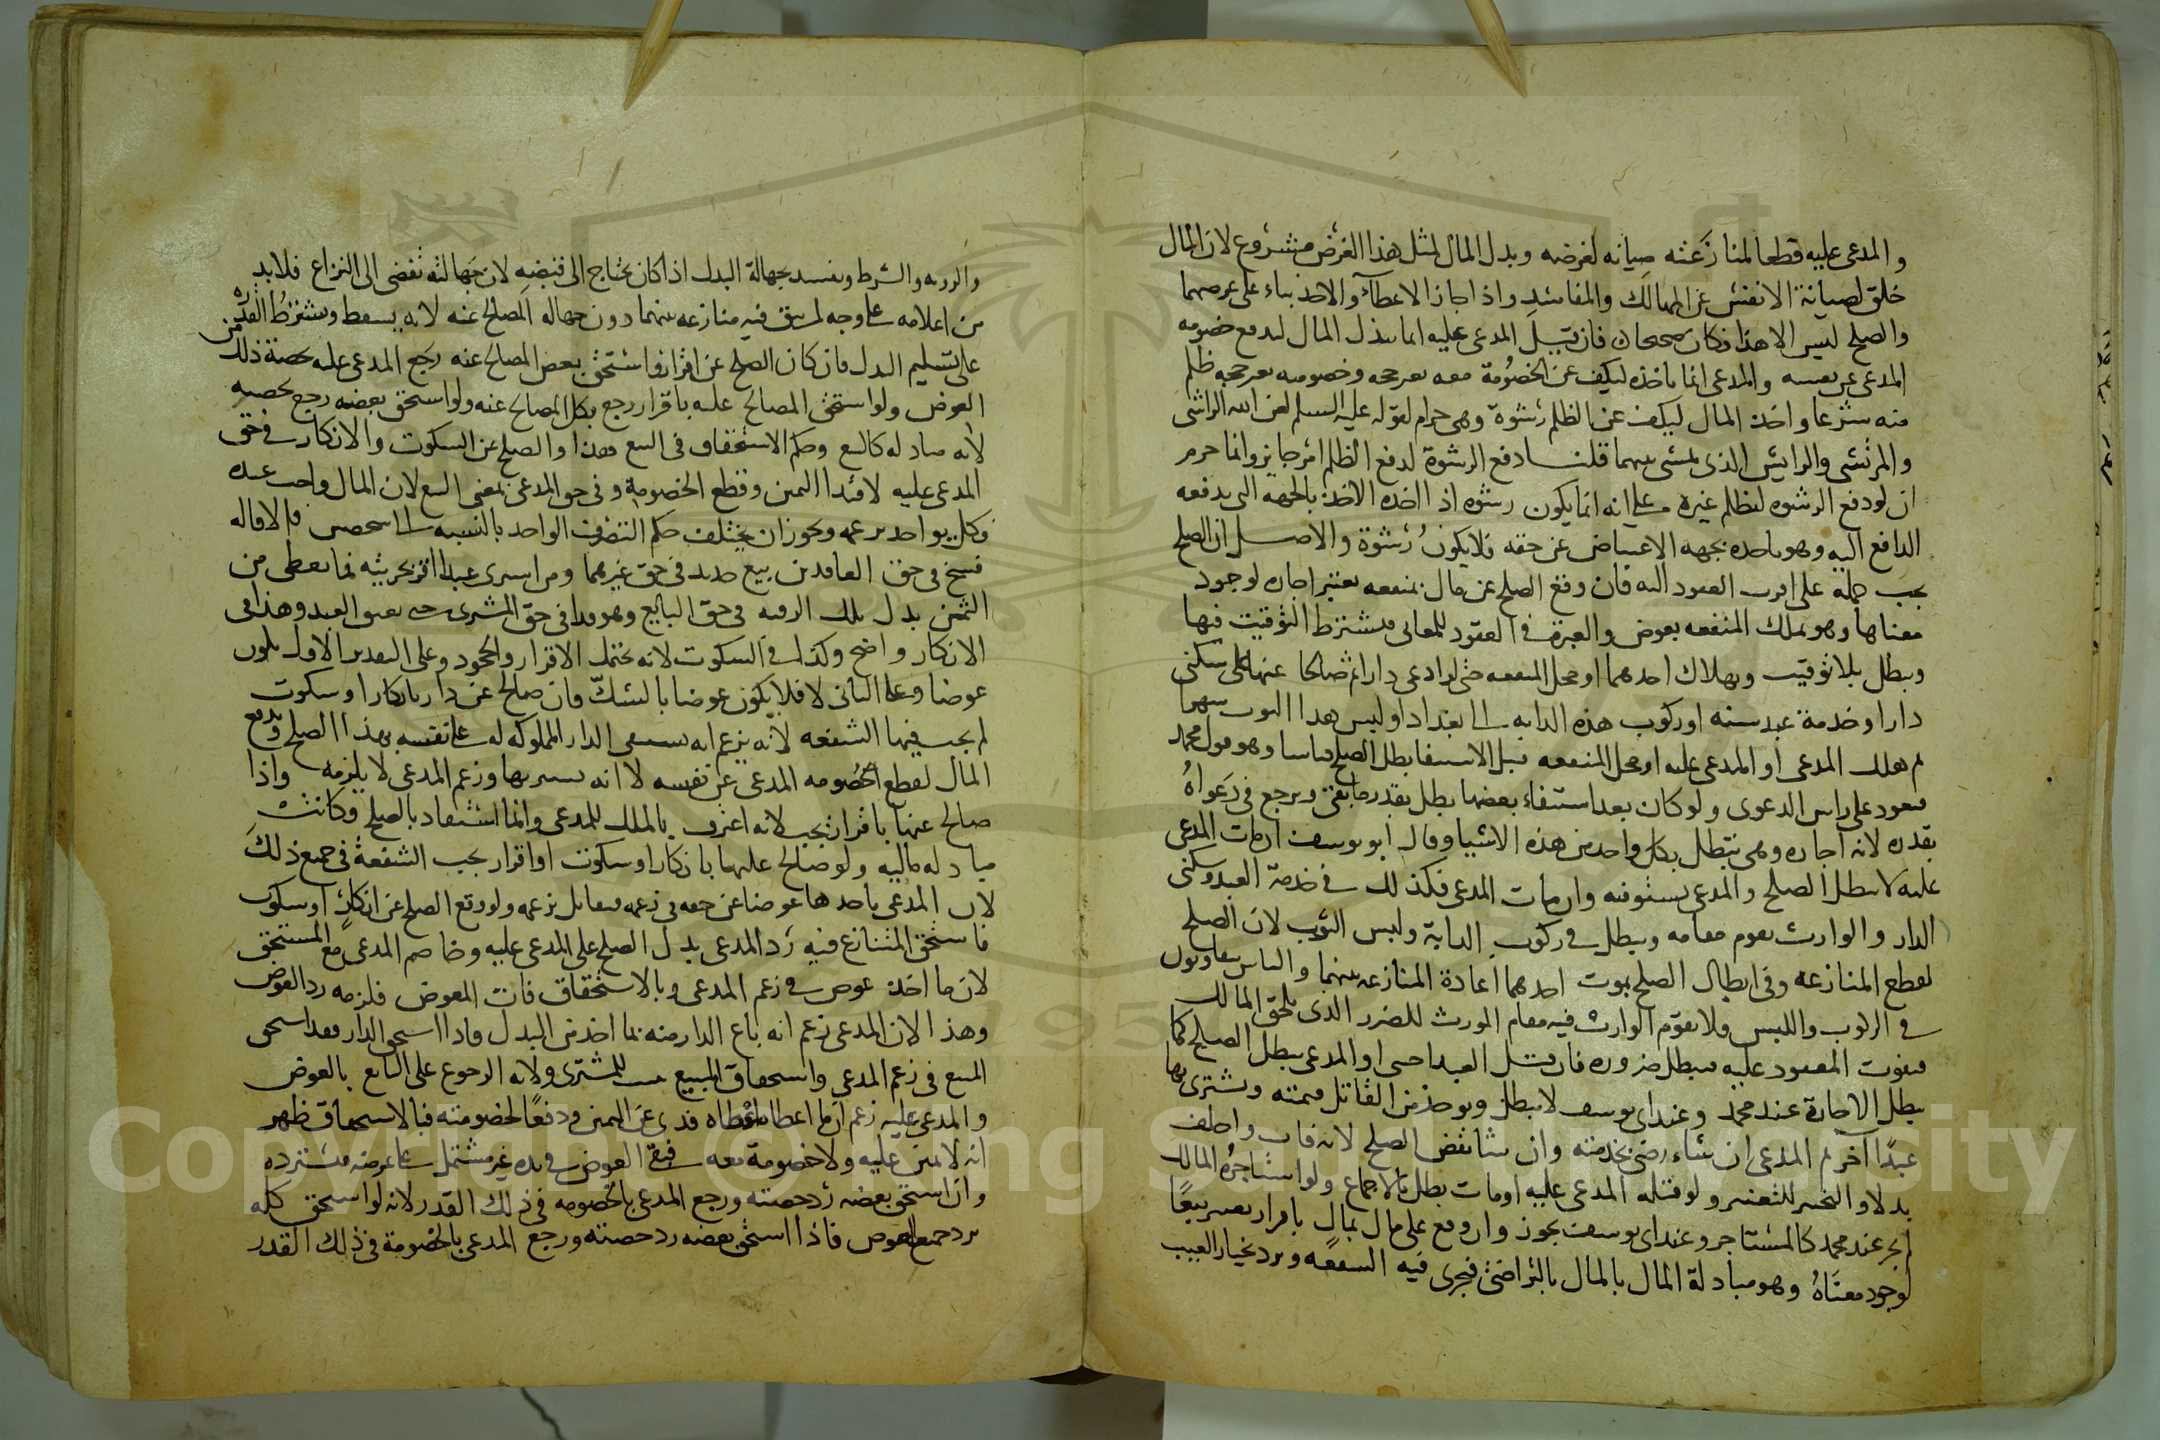 والمدعى عليه قطعا لمنازعته صيانه لغرضه وبدل المال لمثل هذا الغرض مشروع لان المال
خلق لصيانة الانفس عن المهالك والمفاسد واذا جاز الاعطآء والاخد بناء على غرضهما
والصلح ليس الا هذا فكان صحيحا فان قيل المدعى عليه انما يبذل المال ليدفع خصومه
المدعى عن نفسه والمدعى انما ياخذه ليكف عن الخصومة معه بغير حجه وخصومته بغير حجه ظلم
منه شرعا واخذ المال ليكف عن الظلم رشوة وهى حرام لقوله عليه السلم لعن الله الراشى
والمرتشى والرايش الذى يمشى بينهما قلنا دفع الرشوة لدفع الظلم امر جايز وانما حرم
ان لو دفع الرشوه ليظلم غيره على انه انما يكون رشوه اذا اخذه الاخذ بالجهه التى يدفعه
الدافع اليه وهو ياخذه بجهه الاعتياض عن حقه فلا يكون رشوة والاصل ان الصلح
يجب حمله على اقرب العقود اليه فان وقع الصلح عن مال بمنفعه يعتبر اجاره لوجود
معناها وهو تملك المنفعه بعوض والعبرة فى العقود للمعانى فيشترط التوقيت فيها
وبطل بلا توقيت وبهلاك احدهما او محل المنفعه حتى لو ادعى دارا ثم صالحا عنها على سكنى
دارا وخدمة عبد سنه او ركوب هذه الدابه الى بغداد او لبس هذا الثوب شهرا
ثم هلك المدعى او المدعى عليه او محل المنفعه قبل الاستيفا بطل الصلح قياسا وهو قول محمد
فيعود على راس الدعوى ولو كان بعد استيفاء بعضها بطل بقدر ما بقى ويرجع فى دعواهُ
بقدره لانه اجاره وهى تبطل بكل واحد من هذه الاشيا وقال ابو يوسف ان مات المدعى
عليه لا يبطل الصلح والمدعى يستوفيه وان مات المدعى فكذلك فى خدمة العبد وسكنى
الدار والوارث يقوم مقامه ويبطل فى ركوب الدابة ولبس الثوب لان الصلح
لقطع المنازعه وفى ابطال الصلح بموت احدهما اعادة المنازعه بينهما والناس يتفاوتون
فى الركوب واللبس فلا يقوم الوارث فيه مقام المورث للضرر الذى يلحق المالك
فيفوت المعقود عليه فيبطل ضروره فان قتل العبد اجنبى او المدعى يبطل الصلح كما
يبطل الاجارة عند محمد وعند ابى يوسف لا يبطل ويوخذ من القاتل قيمته ويشترى بها
عبدًا آخر ثم المدعى ان شاء رضى بخدمته وان شا نقض الصلح لانه فات واخلف
بدلا والتخير للتغير ولو قتله المدعى عليه او مات بطل بالاجماع ولو استاجره المالك
لم يجز عند محمد كالمستاجر وعند ابى يوسف يجوز وان وقع على مال بمال باقرار يعتبر بيعًا
لوجود معناهُ وهو مبادلة المال بالمال بالتراضى فيجرى فيه الشفعه ويرد بخيار العيب
والرويه والشرط ويفسد بجهالة البدل اذا كان يحتاج الى قبضه لان جهالته تفضى الى النزاع فلابد
من اعلامه على وجه لم يبق فيه منازعه بينهما دون جهاله المصالح عنه لانه يسقط ويشترط القدره
على تسليم البدل فان كان الصلح عن اقرار فاستحق بعض المصالح عنه رجع المدعى عليه بحصة ذلك من
العوض ولو استحق المصالح عليه باقرار رجع بكل المصالح عنه ولو استحق بعضه رجع بحصته
لانه مبادله كالبيع وحكم الاستحقاق فى البيع هذا والصلح عن السكوت والانكار فى حق
المدعى عليه لافتدا اليمين وقطع الخصومة وفى حق المدعى بمعنى البيع لان المال واجب عنده
وكل يواخد بزعمه ويجوز ان يختلف حكم التصرف الواحد بالنسبه الى شخصين فالاقاله
فسخ فى حق العاقدين بيع جديد فى حق غيرهما ومن اشترى عبدا اقر بحريته فما يعطى من
الثمن بدل ملك الرقبه فى حق البايع وهو فدا فى حق المشترى حتى يعتق العبد وهذا فى
الانكار واضح وكذا فى السكوت لانه يحتمل الاقرار والجحود وعلى التقدير الاول يكون
عوضا وعلى الثانى لا فلا يكون عوضا بالشك فان صالح عن دار بانكار او سكوت
لم يجب فيها الشفعه لانه يزعم انه يستبقى الدار المملوكه له على نفسه بهذا الصلح ويدفع
المال لقطع الخصومه المدعى عن نفسه لا انه يشتريها وزعم المدعى لا يلزمه واذا
صالح عنها باقرار يجب لانه اعترف بالملك للمدعى وانما استفاد بالصلح فكانت
مبادله ماليه ولو صالح عليها بانكار او سكوت او اقرار يجب الشفعة فى جميع ذلك
لان المدعى ياخدها عوضا عن حقه فى زعمه فيعامل بزعمه ولو وقع الصلح عن انكار او سكوت
فاستحق المتنازع فيه رد المدعى بدل الصلح على المدعى عليه وخاصم المدعى مع المستحق
لان ما اخذ عوض فى زعم المدعى وبالاستحقاق فات المعوض فلزمه رد العوض
وهذا لان المدعى زعم انه باع الدار منه بما اخذ من البدل فاذا استحق الدار فقد استحق
المبيع فى زعم المدعى واستحقاق المبيع يثبت للمشترى ولاية الرجوع على البايع بالعوض
والمدعى عليه زعم ان ما اعطاه فدى عن اليمين ودفعًا لخصومته فبالاستحقاق ظهر
انه لا يمين عليه ولا خصومة معه فبقى العوض فى يده غير مشتمل على غرضه فيسترده
وان استحق بعضه رد حصته ورجع المدعى بالخصومه فى ذلك القدر لانه لو استحق كله
يرد جميع العوض فاذا استحق بعضه رد حصته ورجع المدعى بالخصومة فى ذلك القدر
Copyright © King Saud University